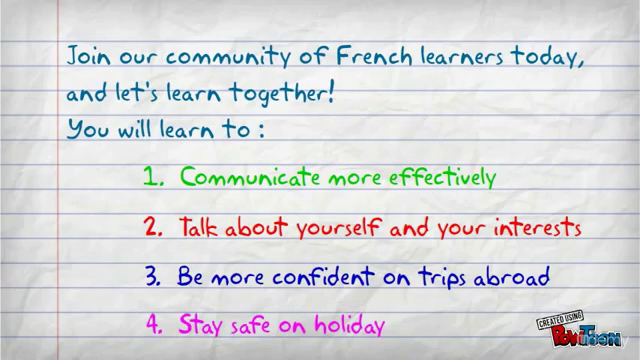 Join our community of French learners today,
and let's learn together!
You will learn to :
1. Communicate more effectively
2. Talk about yourself and your interests
3. Be more confident on trips abroad
4. Stay safe on holiday
CREATED USING
PowToon